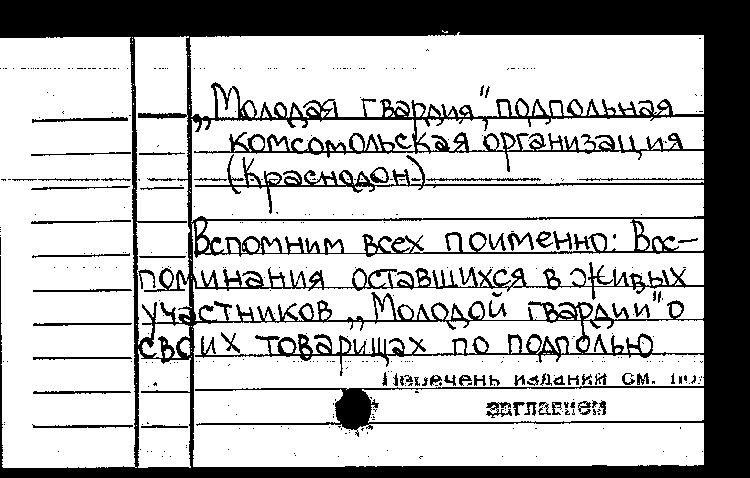 „Молодая гвардия", подпольная
комсомольская организация
(Краснодон).
Вспомним всех поименно: Вос-
поминания оставшихся в живых
участников „Молодой гвардии" о
своих товарищах по подполью
Перечень изданий см. под
заглавием